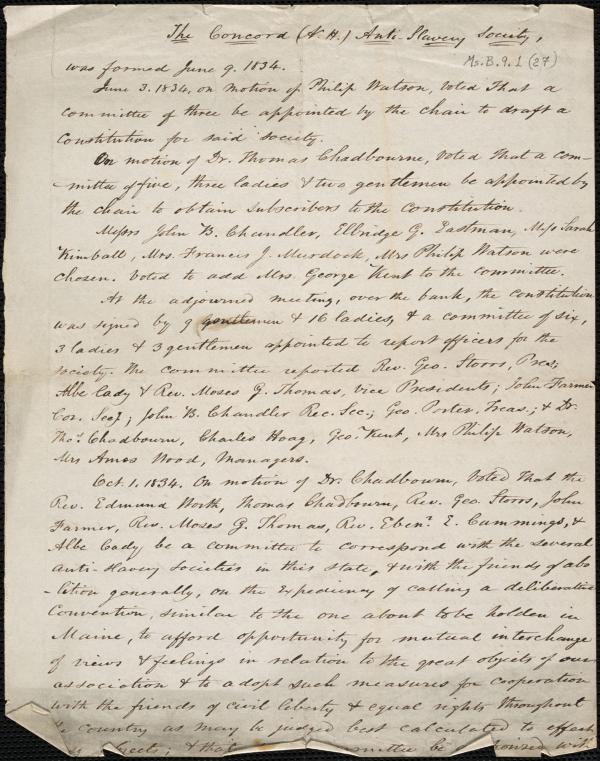 The Concord (N.H.) Anti-Slavery Society,
Ms.B.9.1 (27)
was formed June 9. 1834.
June 3. 1834, on motion of Philip Watson, voted That a
committee of three be appointed by the chair to draft a
Constitution for said society.
On motion of Dr. Thomas Chadbourne, voted That a com-
-mittee of five, three ladies & two gentlemen be appointed by
the chair to obtain subscribers to the Constitution.
Messrs John B. Chandler, Elbridge G. Eastman, Miss Sarah
Kimball, Mrs. Francis J. Murdock, Mrs Philip Watson were
chosen. Voted to add Mrs. George Kent to the committee.
At the adjourned meeting, over the bank, the constitution
was signed by 9 gentlemen & 16 ladies, & a committee of six,
3 ladies & 3 gentlemen appointed to report officers for the
society. The committee reported Rev. Geo. Storrs, Pres;
Albe Cady & Rev. Moses G. Thomas, vice Presidents; John Farmer
Cor. Secy; John B. Chandler Rec. Sec.; Geo. Porter, Treas.; & Dr.
Thos. Chadbourn, Charles Hoag, Geo. Kent, Mrs Philip Watson,
Mrs Amos Wood, Managers.
Oct. 1. 1834. On motion of Dr. Chadbourn, Voted That the
Rev. Edmund Worth, Thomas Chadbourn, Rev. Geo. Storrs, John
Farmer, Rev. Moses G. Thomas, Rev. Ebenr. E. Cummings, &
Albe Cady be a committee to correspond with the several
anti-slavery societies in this state, & with the friends of abo
-lition generally, on the expediency of calling a deliberative
Convention, similar to the one about to be holden in
Maine, to afford opportunity for mutual interchange
of views & feelings in relation to the great objects of our
association & to adopt such measures for cooperation
with the friends of civil liberty & equal rights throughout
the country as may be judged best calculated to effect
objects; & that committee be with